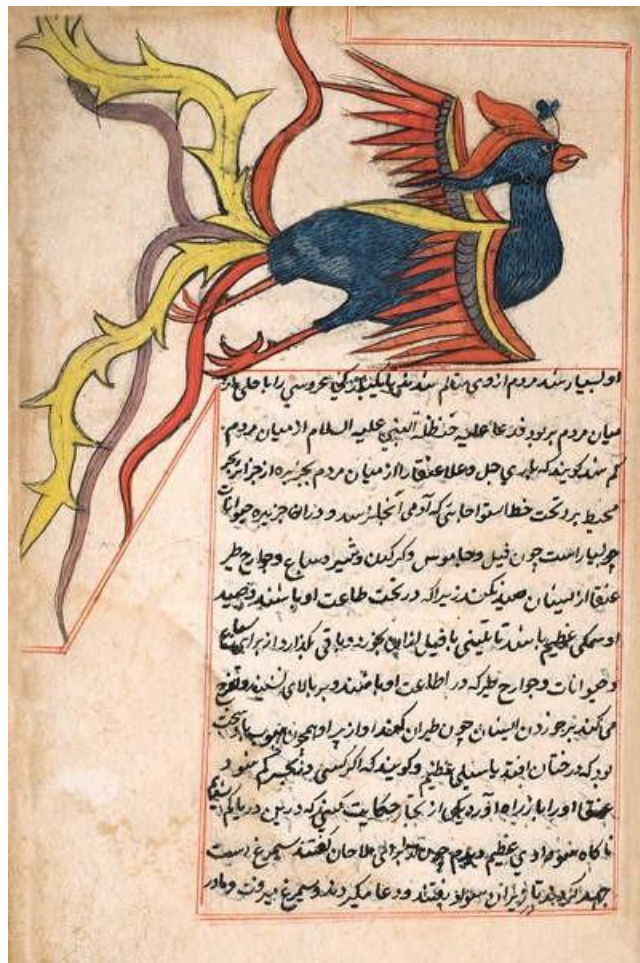 او بسیار شد مردم از وی متالم شدند
میان مردم بر بود فدعا علیه حنظلة النبي علیه السلام از میان مردم
کم شد کویند که باری جل وعلا عنقا را از میان مردم بجزیره از جزایر بحر
محیط برد تحت خط استوا جایی که آدمی آنجا نرسد و در ان جزیره حیوانات
چو بسیار است چون فیل و جاموس و کرکدن و شیر و سباع و جوارح طیر
عنقا از ایشان صید نکند زیرا که در تحت طاعت او باشند و صید
او سمکی عظیم باشد یا تنینی یا فیل ازان بخورد و باقی بگذارد از برای سباع
و حیوانات و جوارح طیر که در اطاعت او باشند و بر بالای نشیند و
می کند بر خوردن ایشان چون طیران کند اواز پر او همچون
بود که درختان افتد یا سیلی عظیم و کویند که اگر کسی در کم شود
عنقا او را باز راه آورد یکی از تجار حکایت کند که در بن دریا کم شدیم
ناکاه سوادی عظیم دیدم چون ملاحان کفتند سیمرغ است
جهد کردند تا زیر ان سواد رفتند و دعا میکردند و سیمرغ میرفت و ما در